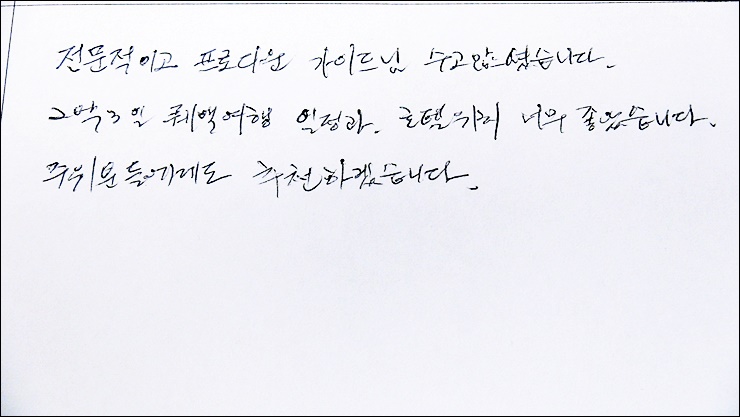 전문적이고 프로다운 가이드님 수고많으셨습니다.
2박3일 퀘백여행 일정과. 호텔위치 너무 좋았습니다.
주위분들에게도 추천하겠습니다.